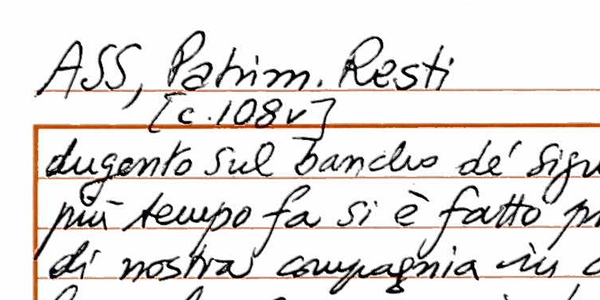 ASS, Patrim. Resti
[c.108v]
dugento sul bancho de'
più tempo fa si è fatto
di nostra compagnia in